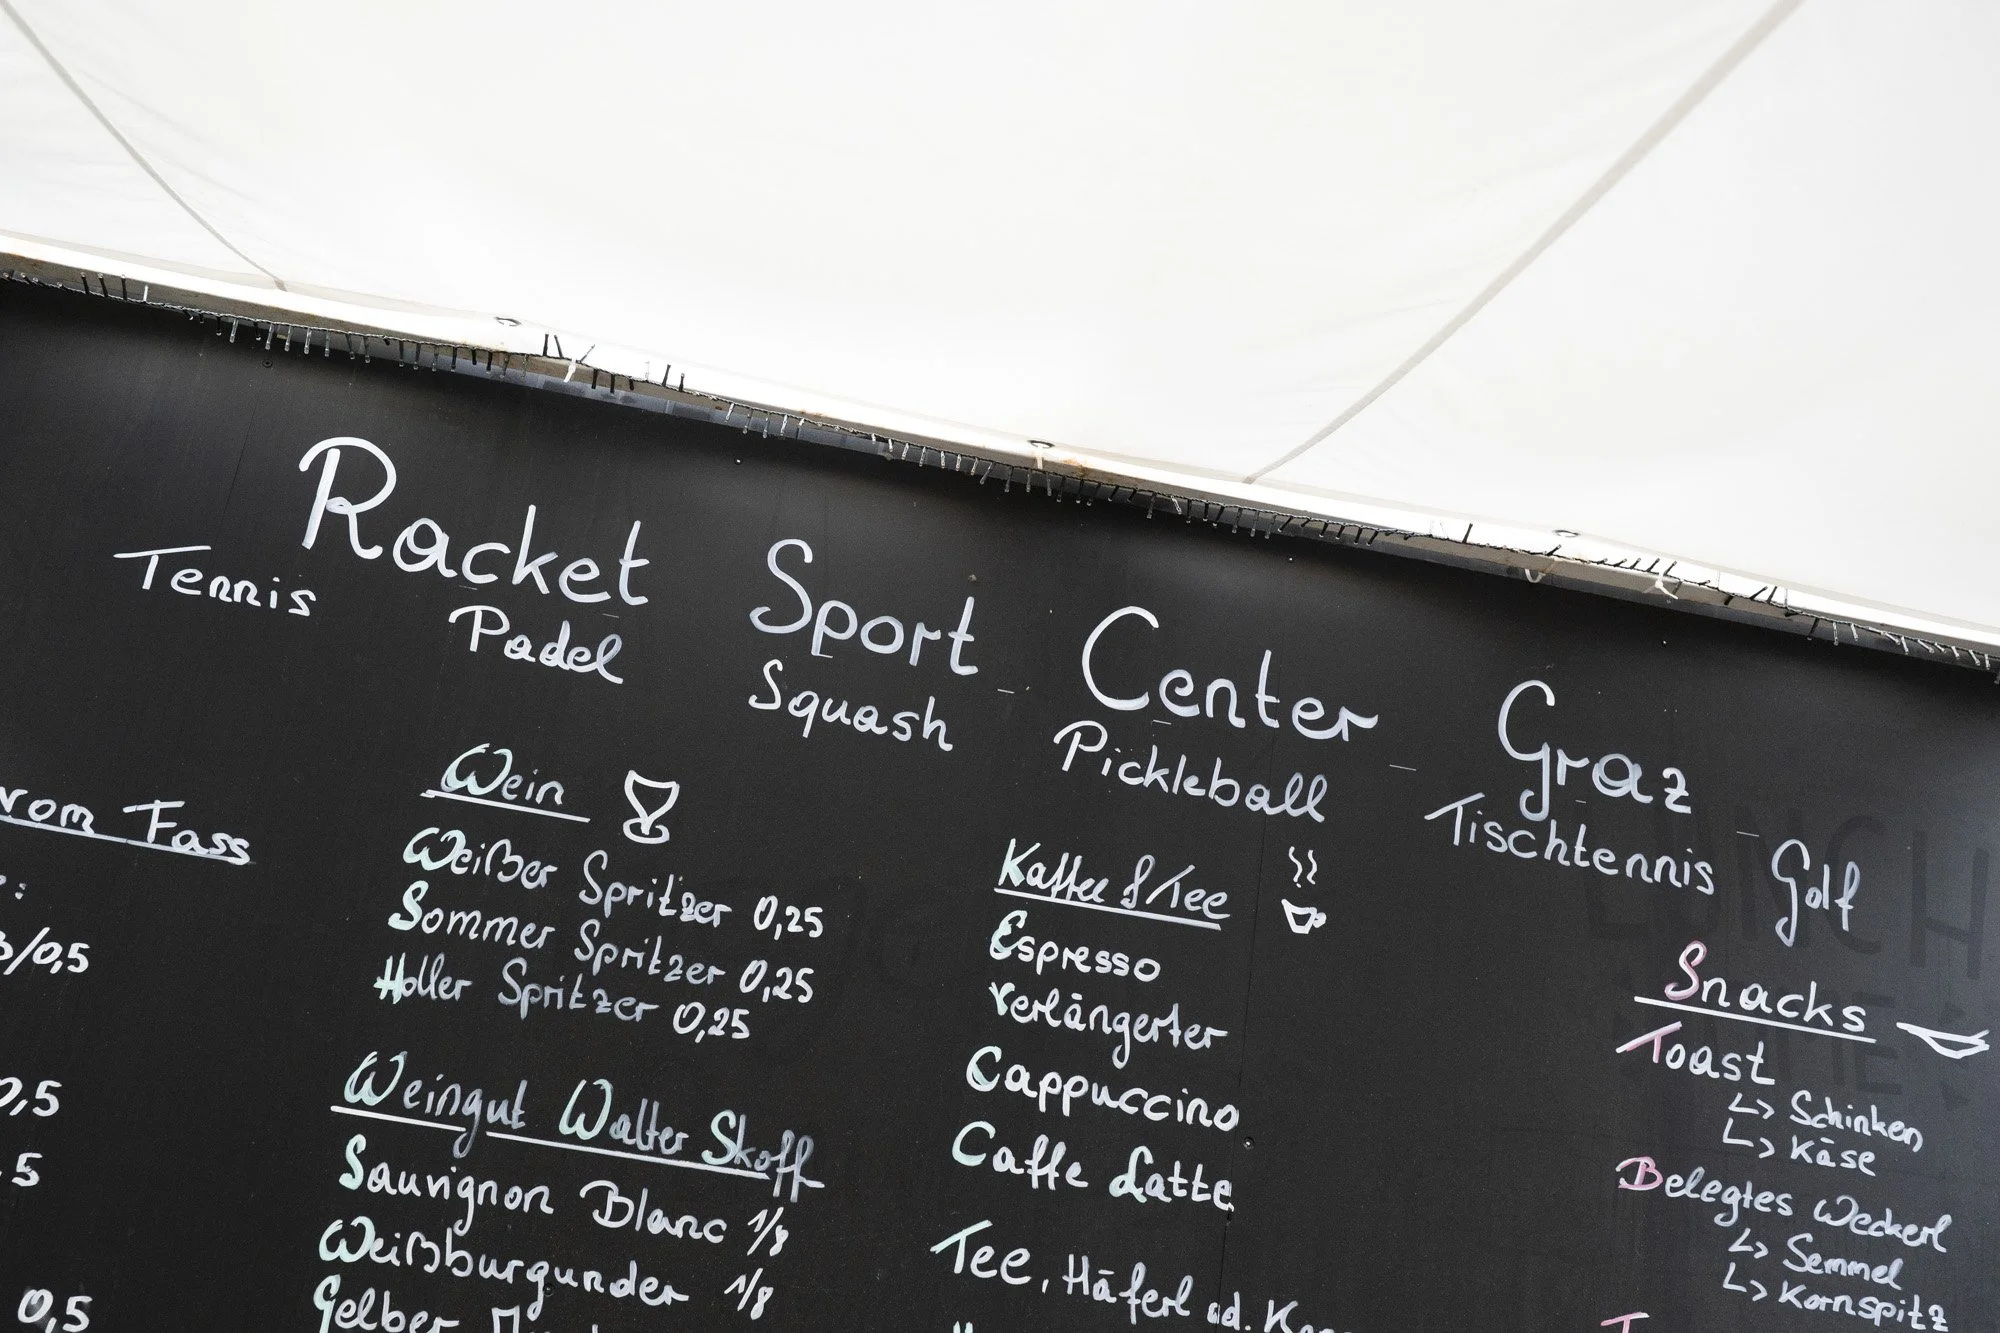 Racket Sport Center Graz
Tennis Padel Squash Pickleball Tischtennis Golf
vom Fass
/0,5
0,5
,5
0,5
Wein
Weißer Spritzer 0,25
Sommer Spritzer 0,25
Holler Spritzer 0,25
Weingut Walter Skoff
Sauvignon Blanc 1/8
Weißburgunder 1/8
Gelber
Kaffee & Tee
Espresso
Verlängerter
Cappuccino
Caffe Latte
Tee, Häferl od.
Snacks
Toast
↳ Schinken
↳ Käse
Belegtes Weckerl
↳ Semmel
↳ Kornspitz
LUNCH
TIME